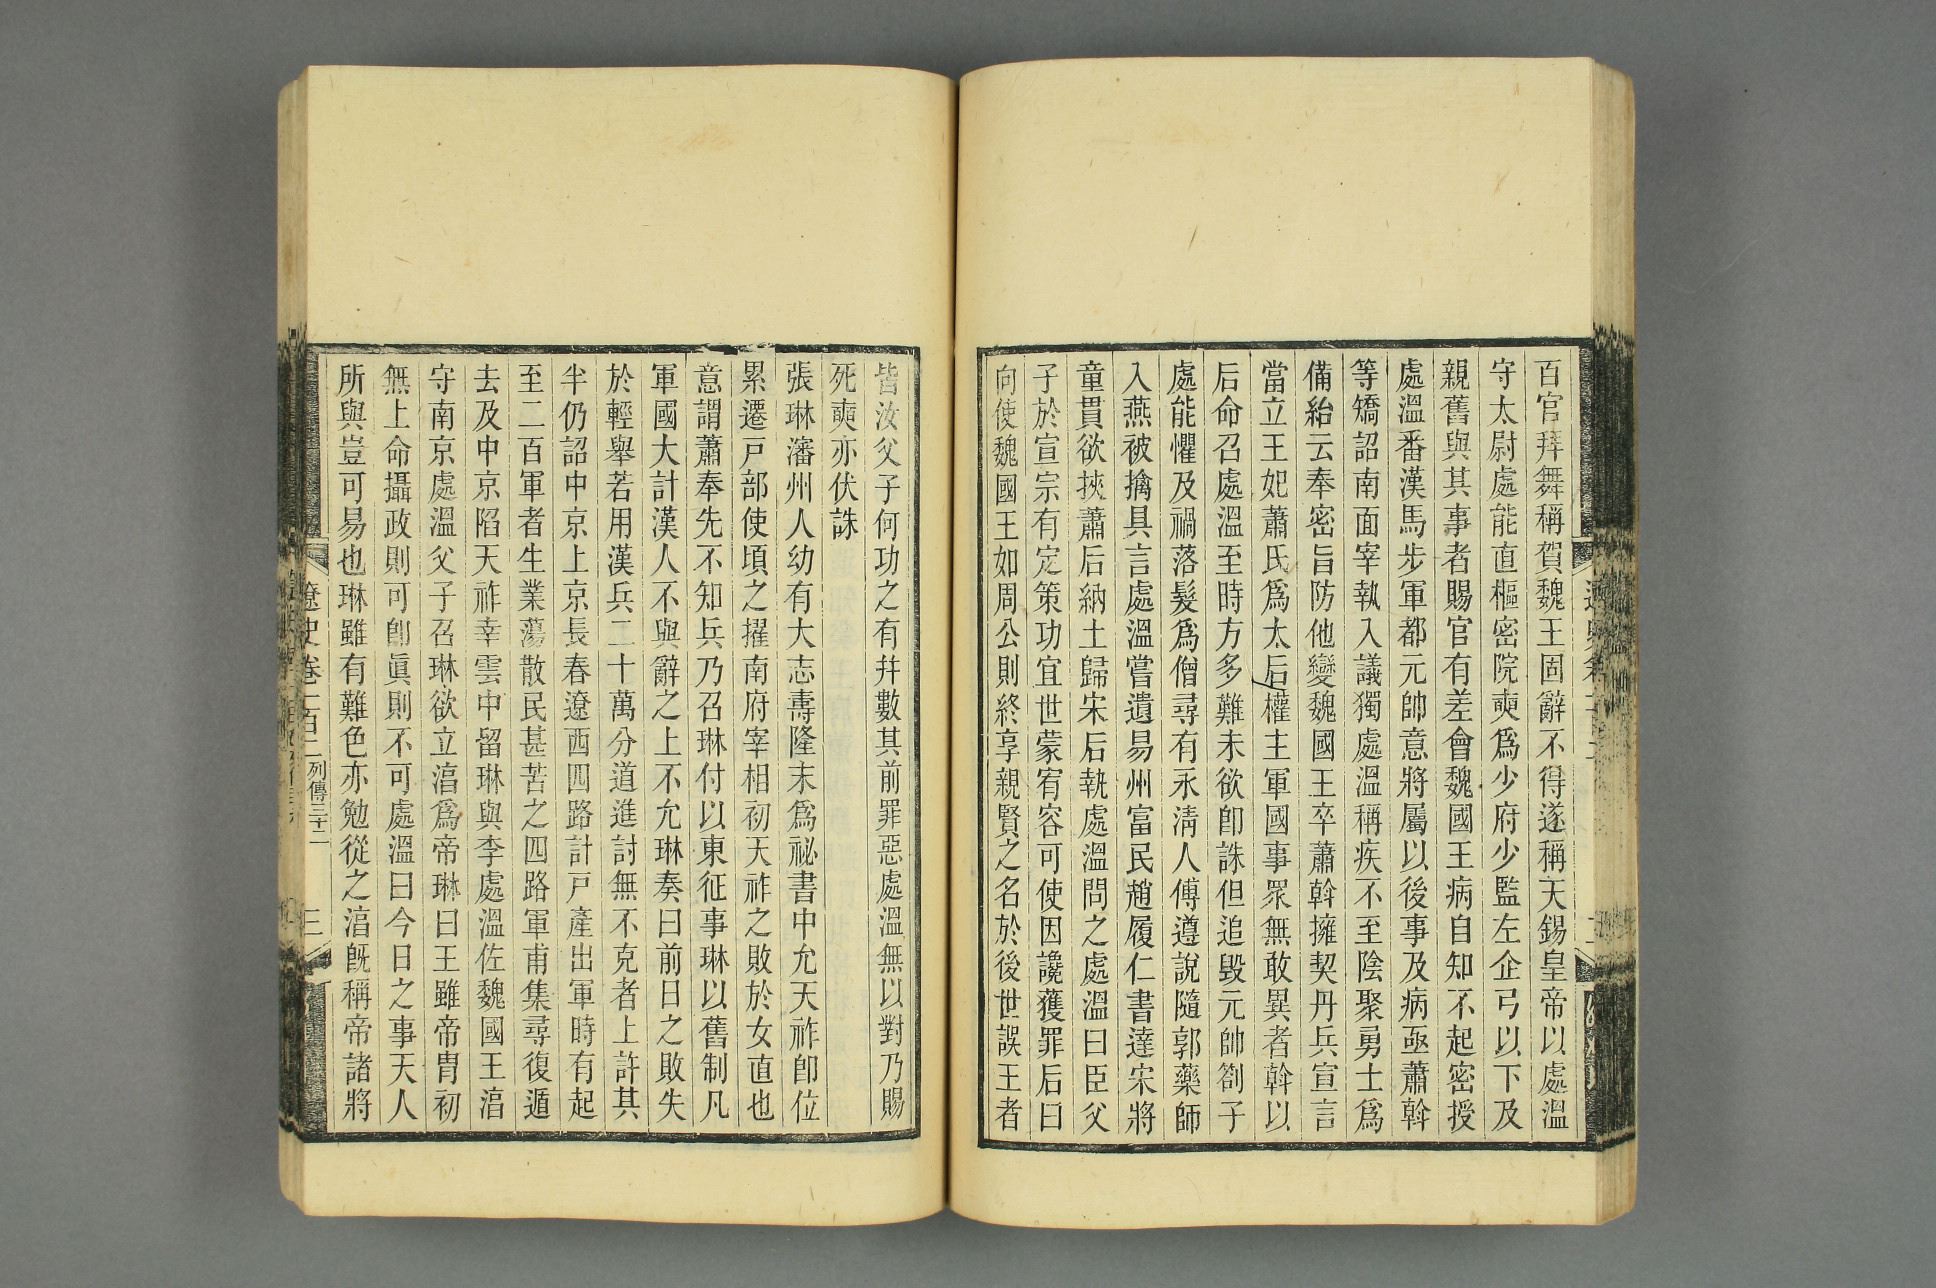 百官拜舞稱賀魏王固辭不得遂稱天錫皇帝以處溫
守太尉處能直樞密院奭爲少府少監左企弓以下及
親舊與其事者賜官有差會魏國王病自知不起密授
處溫番漢馬步軍都元帥意將屬以後事及病亟蕭斡
等矯詔南面宰執入議獨處溫稱疾不至陰聚勇士爲
備紿云奉密旨防他變魏國王卒蕭斡擁契丹兵宣言
當立王妃蕭氏爲太后權主軍國事眾無敢異者斡以
后命召處溫至時方多難未欲卽誅但追毀元帥劄子
處能懼及禍落髮爲僧尋有永清人傅遵說隨郭藥師
入燕被擒具言處溫嘗遺易州富民趙履仁書達宋將
童貫欲挾蕭后納土歸宋后執處溫問之處溫曰臣父
子於宣宗有定策功宜世蒙宥容可使因讒獲罪后曰
向使魏國王如周公則終享親賢之名於後世誤王者
皆汝父子何功之有幷數其前罪惡處溫無以對乃賜
死奭亦伏誅
張琳瀋州人幼有大志壽隆末爲祕書中允天祚卽位
累遷戸部使頃之擢南府宰相初天祚之敗於女直也
意謂蕭奉先不知兵乃召琳付以東征事琳以舊制凡
軍國大計漢人不與辭之上不允琳奏曰前日之敗失
於輕舉若用漢兵二十萬分道進討無不克者上許其
半仍詔中京上京長春遼西四路計戸產出軍時有起
至二百軍者生業蕩散民甚苦之四路軍甫集尋復遁
去及中京陷天祚幸雲中留琳與李處溫佐魏國王淳
守南京處溫父子召琳欲立淳爲帝琳曰王雖帝胄初
無上命攝政則可卽眞則不可處溫曰今日之事天人
所與豈可易也琳雖有難色亦勉從之淳旣稱帝諸將
遼史卷一百二 列傳三十二
三